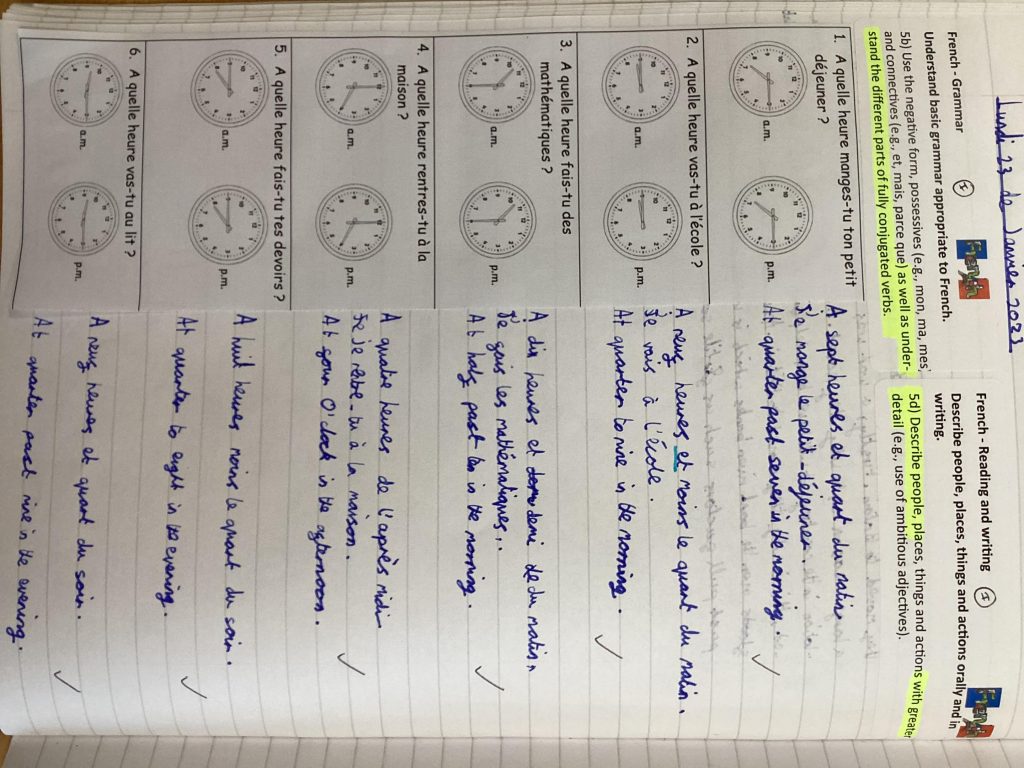 Lundi 23 de Janvier 2023
French - Grammar I
Understand basic grammar appropriate to French.
5b) Use the negative form, possessives (e.g., mon, ma, mes,
and connectives (e.g., et, mais, parce que) as well as under-
stand the different parts of fully conjugated verbs.
French
French - Reading and writing I
Describe people, places, things and actions orally and in
writing.
5d) Describe people, places, things and actions with greater
detail (e.g., use of ambitious adjectives).
French
1. A quelle heure manges-tu ton petit
déjeuner ?
a.m. p.m.
A sept heures et quart du matin
Je mange le petit-déjeuner.
At quarter past seven in the morning.
2. A quelle heure vas-tu à l'école ?
a.m. p.m.
A neuf heures et moins le quart du matin.
Je vais à l'école.
At quarter to nine in the morning.
3. A quelle heure fais-tu des
mathématiques ?
a.m. p.m.
A dix heures et demi de du matin,
Je fais les mathématiques,.
At half past ten in the morning.
4. A quelle heure rentres-tu à la
maison ?
a.m. p.m.
A quatre heures de l'après midi
Je à la maison.
At four O'clock in the afternoon.
5. A quelle heure fais-tu tes devoirs ?
a.m. p.m.
A huit heures moins le quart du soir.
At quarter to eight in the evening.
6. A quelle heure vas-tu au lit ?
a.m. p.m.
A neuf heures et quart du soir.
At quarter past nine in the evening.